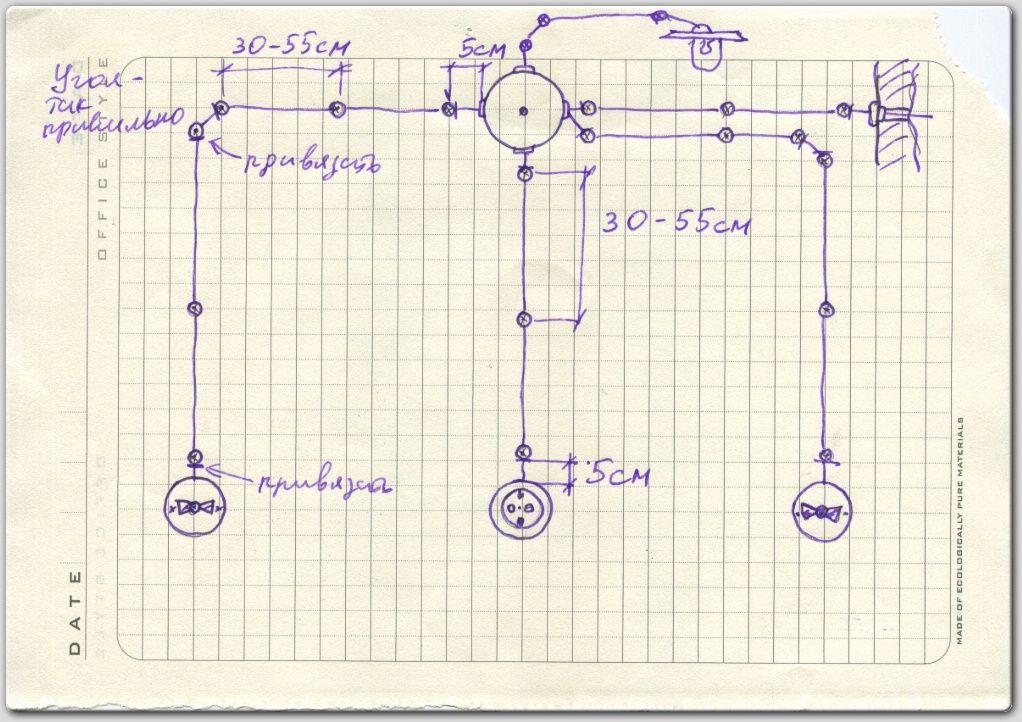 30-55см
5см
Угол -
так
правильно
125
привязать
30-55см
5см
привязать
OFFICE STYLE
DATE
MADE OF ECOLOGICALLY PURE MATERIALS